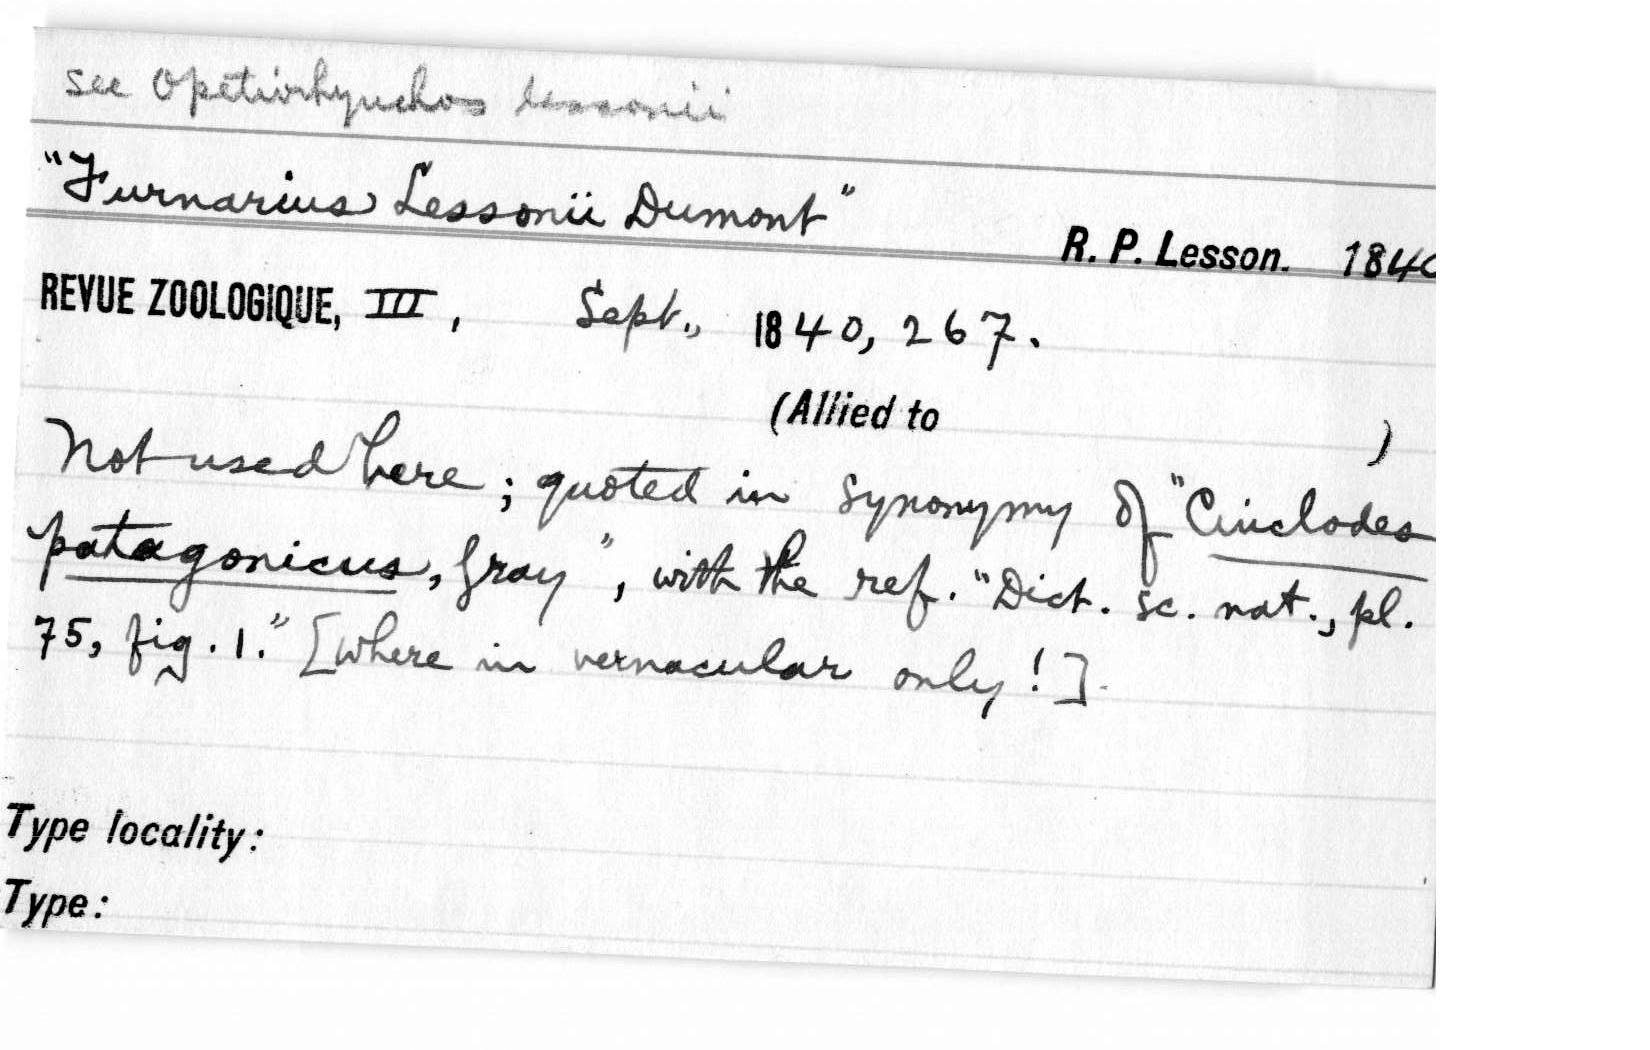 see Opetiorhynchos lessonii
"Furnarius Lessonii Dumont"
R. P. Lesson. 1840
REVUE ZOOLOGIQUE, III, Sept., 1840, 267.
(Allied to )
Not used here; quoted in synonymy of "Cinclodes
patagonicus, Gray", with the ref. "Dict. sc. nat., pl.
75, fig. 1." [where in vernacular only!].
Type locality:
Type: